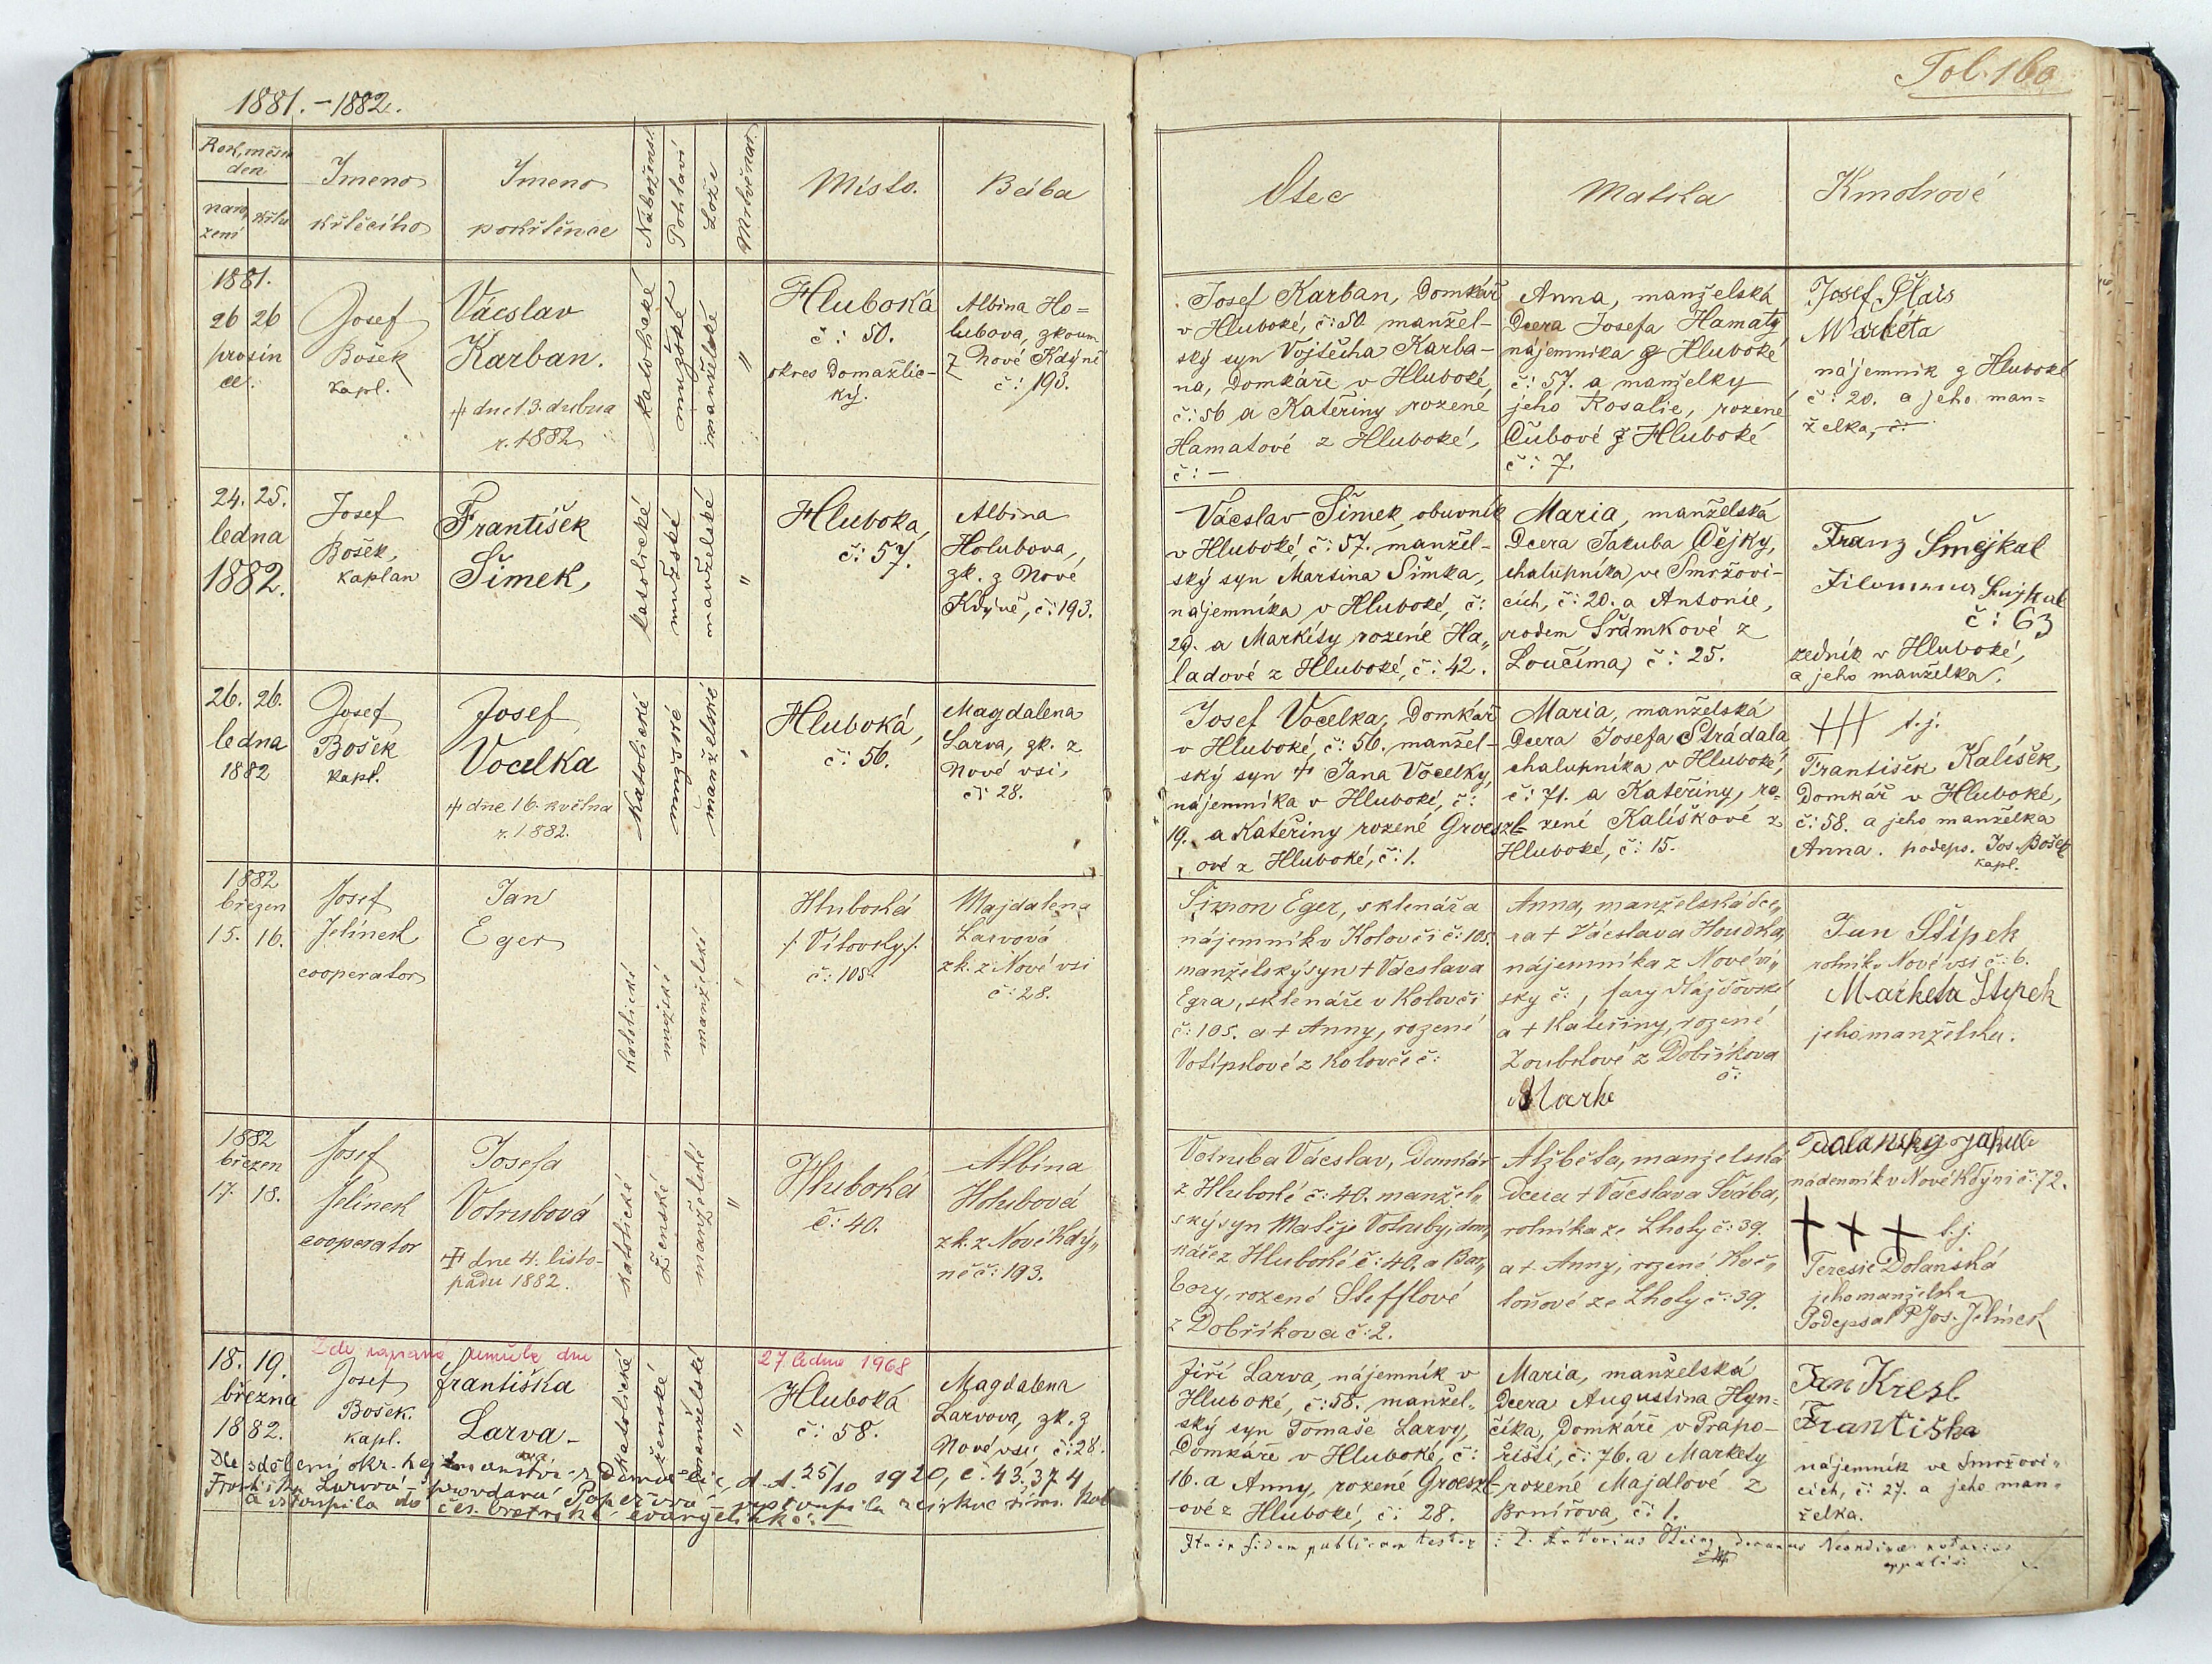 1881. - 1882.
Fol. 160
Rok, měsíc
den
naro
zení
křtu
Imeno
křtícího
Imeno
pokřtěnce
Náboženst.
Pohlaví
Lože
Mrtvěnar.
Místo.
Bába
Otec
Matka
Kmotrové
1881.
26 26
prosin
ce.
Josef
Bošek
kapl.
Vácslav
Karban.
dne 13. dubna
r. 1882
katolické
mužské
manželské
"
Hluboká
č: 50.
okres Domažlic-
ký.
Albina Ho=
lubova, zkoum
z Nové Kdyně
č: 193.
Josef Karban, Domkář
v Hluboké, č: 50. manžel-
ský syn Vojtěcha Karba-
na, Domkáře v Hluboké,
č: 56 a Kateřiny rozené
Hamatové z Hluboké,
č: -
Anna, manželská
Dcera Josefa Hamaty
nájemníka z Hluboké
č: 57. a manželky
jeho Rosalie, rozené
Čubové z Hluboké
č: 7.
Josef Štais
Markéta
nájemník z Hluboké
č: 20. a jeho man=
želka, č:
24. 25.
ledna
1882.
Josef
Bošek,
kaplan
František
Šimek,
katolické
mužské
manželské
"
Hluboká,
č: 57.
Albina
Holubova,
zk. z Nové
Kdyně, č: 193.
Vácslav Šimek, obuvník
v Hluboké, č: 57. manžel-
ský syn Martina Šimka,
nájemníka v Hluboké, č:
29. a Markéty rozené Ha„
ladové z Hluboké, č: 42.
Maria, manželská
Dcera Jakuba Čejky,
chalupníka ve Smržovi-
cích, č: 20. a Antonie,
rodem Šrámkové z
Loučíma, č: 25.
Franz Šmejkal
č: 63
zedník v Hluboké,
a jeho manželka.
26. 26.
ledna
1882
Josef
Bošek
kapl.
Josef
Vocelka
dne 16. května
r. 1882.
Katolické
mužské
manželské
Hluboká,
č: 56.
Magdalena
Larva, zk. z
Nové vsi,
č: 28.
Josef Vocelka, Domkář
v Hluboké, č: 56. manžel-
ský syn + Jana Vocelky,
nájemníka v Hluboké, č:
19. a Kateřiny rozené Groeszl-
ové z Hluboké, č: 1.
Maria, manželská
Dcera Josefa Strádala
chalupníka v Hluboké,
č: 71. a Kateřiny, ro-
zené Kalíškové z
Hluboké, č: 15.
+++ t. j.
František Kalíšek,
Domkář v Hluboké,
č: 58. a jeho manželka
Anna. podeps. Jos. Bošek
kapl.
1882
březen
15. 16.
Josef
Jelínek
cooperator
Jan
Eger
katolické
mužské
manželské
Hluboká
/: Vítovky :/
č: 105.
Majdalena
Larvová
zk. z Nové vsi
č: 28.
Šimon Eger, sklenář a
nájemník v Kolovči č: 105.
manželský syn + Vácslava
Egra, sklenáře v Kolovči
č: 105. a + Anny, rozené
Votípkové z Kolovče č:
Anna, manželská dce„
ra + Vácslava Houdka,
nájemníka z Nové vi„
sky č: , fary
a + Kateřiny, rozené
Zoubkové z Dobříkova
č:
Marke
Jan Štípek
rolník v Nové vsi č: 6.
Marketa Stipek
jeho manželka.
1882
březen
17. 18.
Josef
Jelínek
cooperator
Josefa
Votrubová
dne 4. listo-
padu 1882.
katolické
Ženské
manželské
"
Hluboká
č: 40.
Albína
Holubová
zk. z Nové Kdý„
ně č: 193.
Votruba Vácslav, Domkář
z Hluboké č: 40. manžel„
ský syn Matěje Votruby, dom„
káře z Hluboké č: 40. a Bar„
bory, rozené Stefflové
z Dobříkova č: 2.
Alžběta, manželská
dcera + Vácslava Švába,
rolníka ze Lhoty č: 39.
a + Anny, rozené Kvě„
toňové ze Lhoty č: 39.
Dolanský Jakub
nádenník v Nové Kdyni č: 72.
+ + + t. j.
Terezie Dolanská
jeho manželka
Podepsal P. Jos. Jelínek
Zde zapsaná zemřela dne 27. ledna 1968
18. 19.
března
1882.
Josef
Bošek.
kapl.
Františka
Larva-
ová
katolické
ženské
manželské
"
Hluboká
č: 58.
Magdalena
Larvova, zk. z
Nové vsi č: 28.
Jiří Larva, nájemník v
Hluboké, č: 58. manžel„
ský syn Tomáše Larvy,
Domkáře v Hluboké, č:
16. a Anny, rozené Groeszl-
ové z Hluboké, č: 28.
Maria, manželská
Dcera Augustina Hyn-
číka, Domkáře v Prápo-
řišti, č: 76. a Markety
rozené Majdlové z
Brnířova, č: 1.
Jan Kresl
Františka
nájemník ve Smržovi„
cích, č: 27. a jeho man„
želka.
Dle sdělení okr. hejtmanství v Domažlic, d.d. 25/10 1920, č. 43.374
Františka Larvová - provdaná Papežová - vystoupila z církve řím. kat
a vstoupila do čes. bratrské evangelické.
Ita in fidem publicam testor : D. Antonius decanus Neogdinae notarius